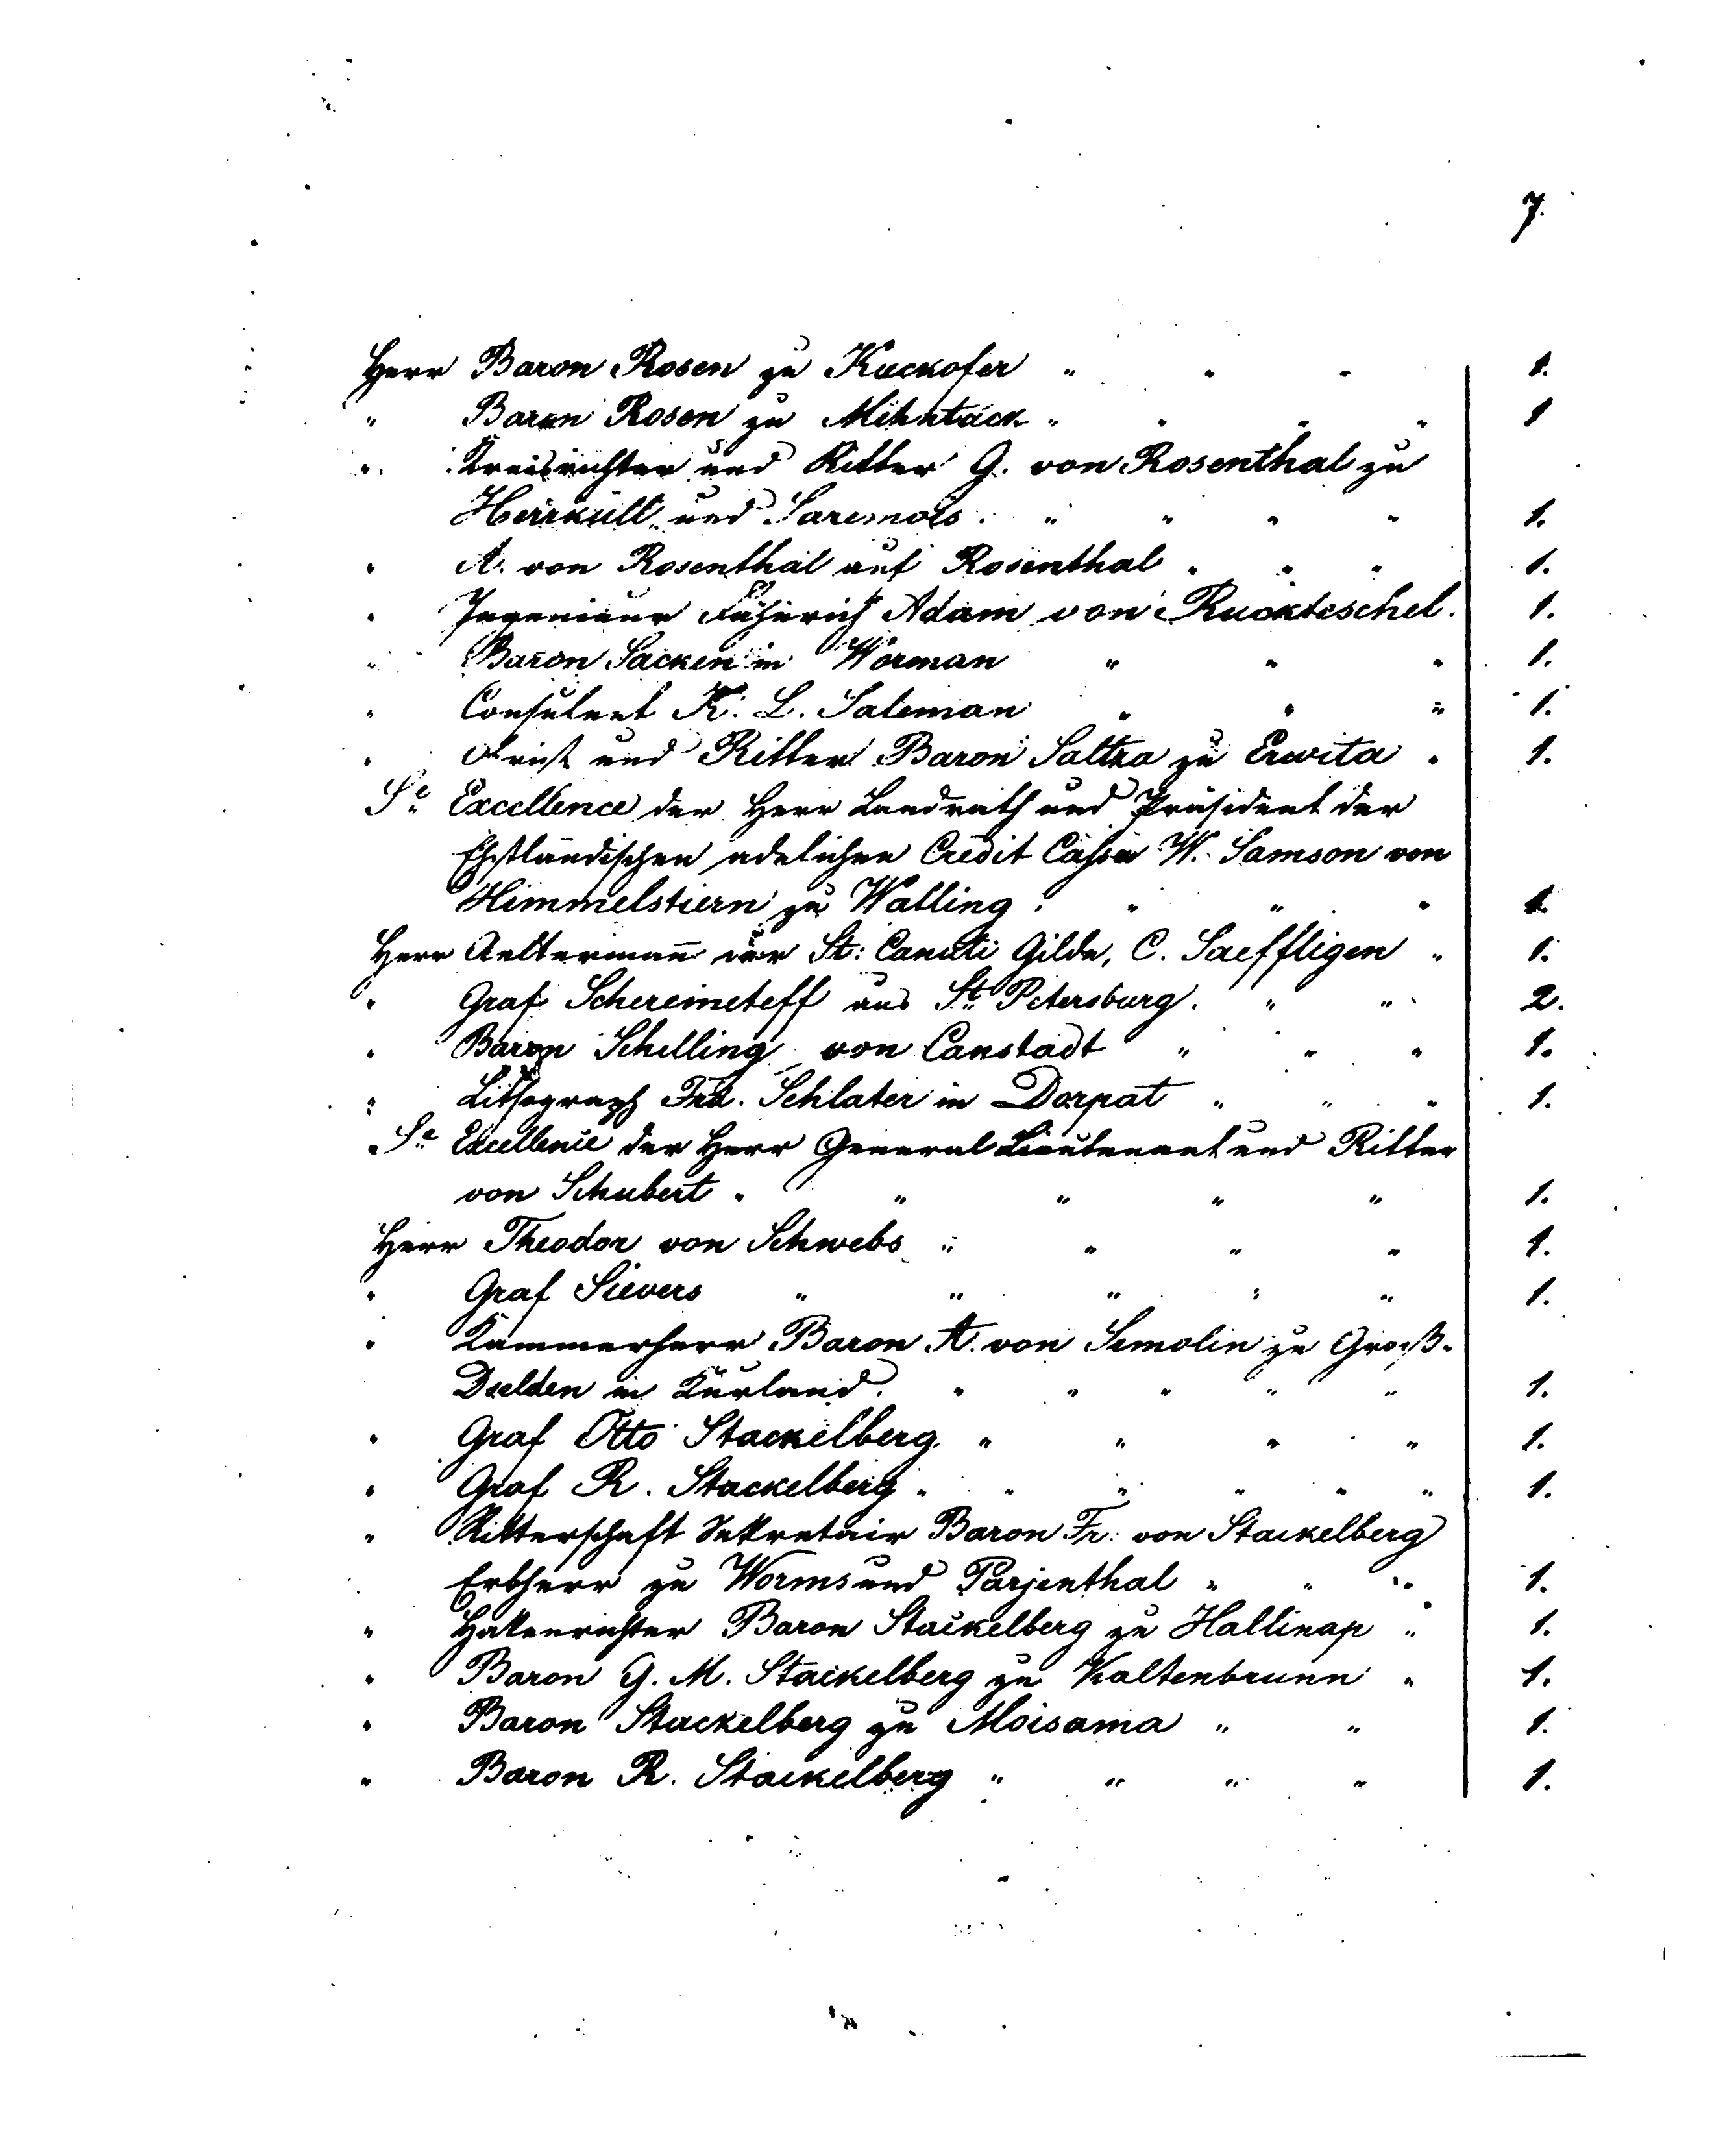 7.
Herr Baron Rosen zu Kuckofer " " " 1.
" Baron Rosen zu Mehntack " " " " 1
" Kreisrichter und Ritter G. von Rosenthal zu
Herrküll und Saremois. " " " " 1.
" A. von Rosenthal auf Rosenthal " " " 1.
" Ingenieur Fähnrich Adam von Rückteschel. 1.
" Baron Sacken in Worman " " " 1.
" Consulent K. L. Saleman " " " 1.
" Obrist und Ritter Baron Saltza zu Erwita " 1.
Se Excellence der Herr Landrath und Präsident der
Ehstländischen adelichen Credit Cassa W. Samson von
Himmelstiern zu Walling " " " 1.
Herr Aeltermann̄ der St: Canuti Gilde, C. Saeffligen " 1.
" Graf Scheremeteff aus St. Petersburg. " " 2.
" Baron Schelling von Canstadt " " " 1.
" Lithograph Frd. Schlater in Dorpat " " " 1.
Se Excellence der Herr General Lieutenant und Ritter
von Schubert " " " " " 1.
Herr Theodor von Schwebs " " " " 1.
" Graf Sievers " " " " " 1.
" Kammerherr Baron A. von Simolin zu Groß-
Dselden in Kurland. " " " " " 1.
" Graf Otto Stackelberg " " " " 1.
" Graf R. Stackelberg " " " " " " 1.
" Ritterschaft Sekretair Baron Fr: von Stackelberg
Erbherr zu Worms und Parjenthal " " " 1.
" Hakenrichter Baron Stackelberg zu Hallinap " 1.
" Baron G. M. Stackelberg zu Kaltenbrunn " 1.
" Baron Stackelberg zu Moisama " " 1.
" Baron R. Stackelberg " " " " 1.